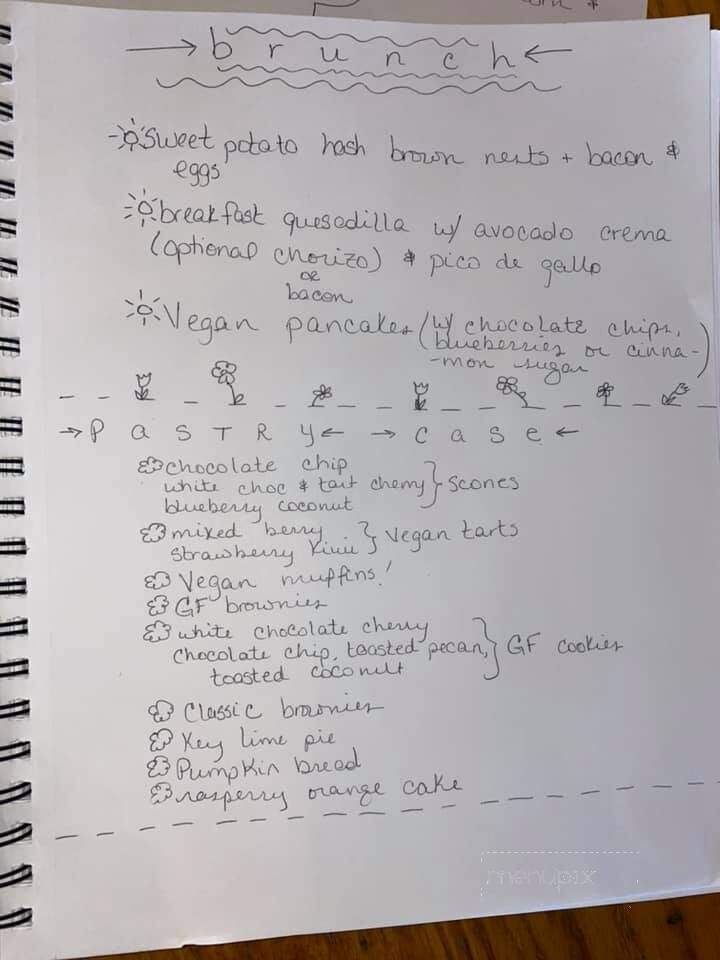 → brunch ←
Sweet potato hash brown nests + bacon &
eggs
breakfast quesadilla w/ avocado crema
(optional chorizo) & pico de gallo
or
bacon
Vegan pancakes (w/ chocolate chips,
blueberries or cinna-
-mon sugar)
→ PASTRY ← → case ←
chocolate chip
white choc & tart cherry } scones
blueberry coconut
mixed berry
strawberry kiwi } vegan tarts
Vegan muffins!
GF brownies
white chocolate cherry
chocolate chip, toasted pecan, } GF cookies
toasted coconut
Classic brownies
Key lime pie
Pumpkin bread
rasperry orange cake
menupix